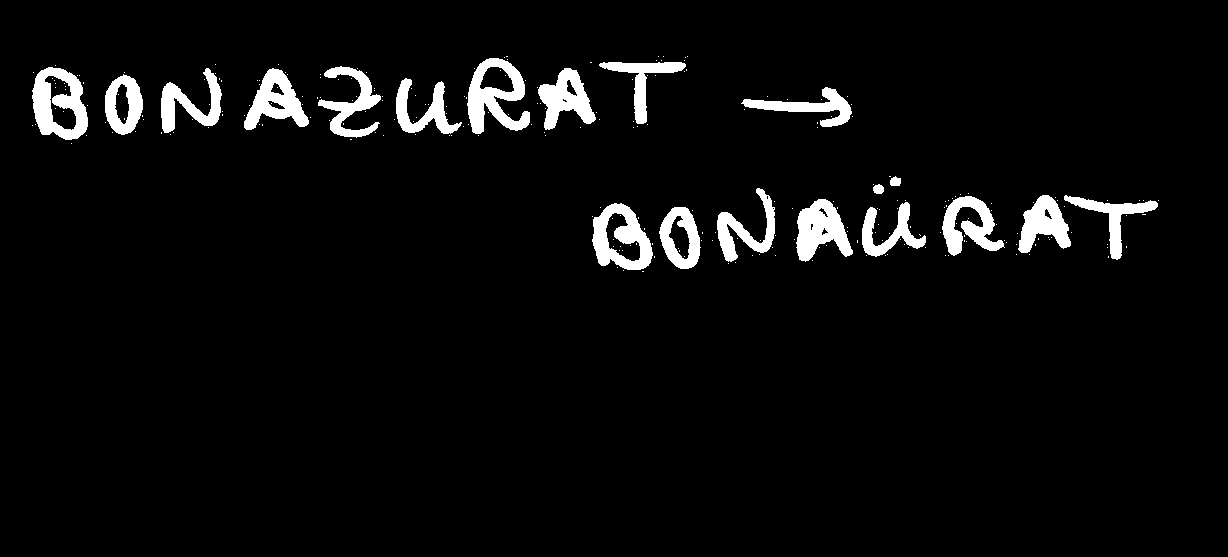 BONAZURAT →
BONAÜRAT